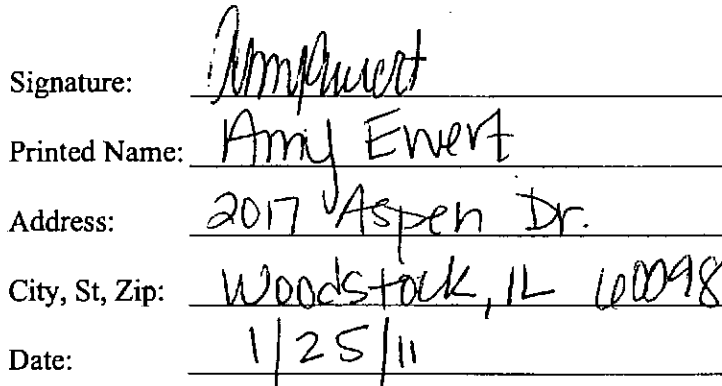 Signature: Amy Ewert
Printed Name: Amy Ewert
Address: 2017 Aspen Dr.
City, St, Zip: Woodstock, IL 60098
Date: 1/25/11